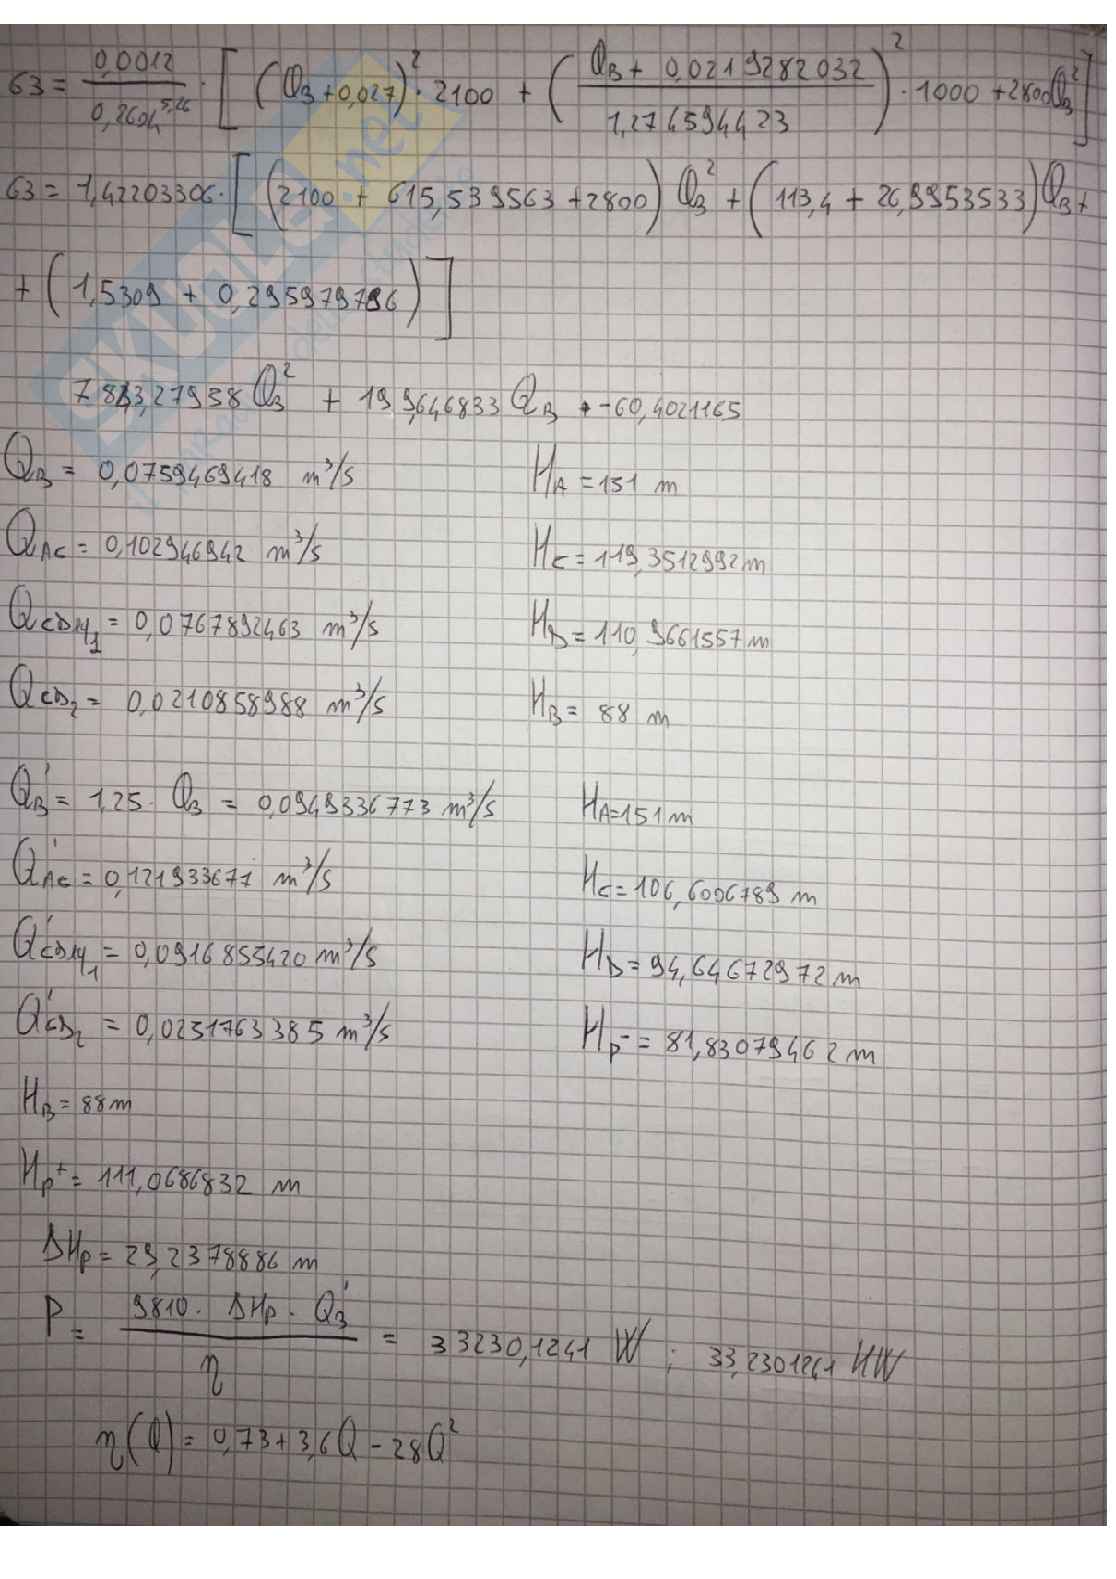 63 = 0,0012 / 0,2604^5,26 · [ (Q_B + 0,027)² · 2100 + ( (Q_B + 0,0219282032) / 1,274594423 )² · 1000 + 2800 Q_B² ]
63 = 1,42203306 · [ (2100 + 615,539563 + 2800) Q_B² + (113,4 + 26,9953533) Q_B +
+ (1,5309 + 0,295979796) ]
7843,27938 Q_B² + 199,646833 Q_B + -60,4021165
Q_B = 0,0759469418 m³/s H_A = 151 m
Q_AC = 0,102946942 m³/s H_C = 119,3512992 m
Q_CDM1 = 0,0767892463 m³/s H_D = 110,9661557 m
Q_CD2 = 0,0210858988 m³/s H_B = 88 m
Q'_B = 1,25 · Q_B = 0,0949336773 m³/s H_A = 151 m
Q'_AC = 0,121933677 m³/s H_C = 106,6006789 m
Q'_CDM1 = 0,0916855420 m³/s H_D = 94,64672972 m
Q'_CD2 = 0,0251763385 m³/s H_P⁻ = 81,83079462 m
H_B = 88 m
H_P⁺ = 111,0686832 m
ΔH_P = 29,2378886 m
P = 9810 · ΔH_P · Q'_B / η = 33230,1241 W ; 33,2301241 KW
η(Q) = 0,73 + 3,6Q - 28Q²
SKUOLA.net